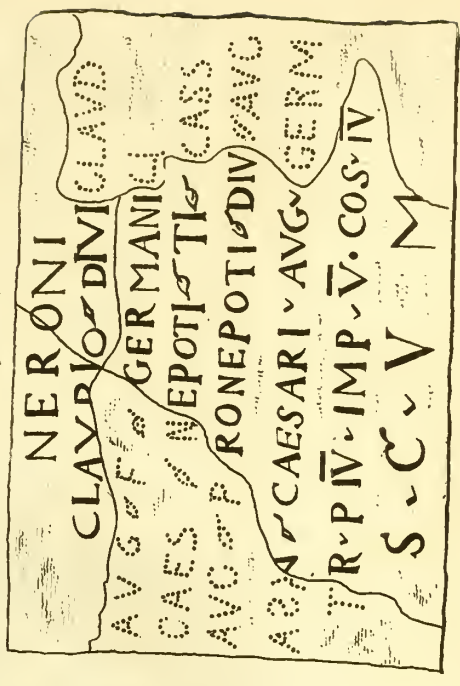 NERONI
CLAVDIO DIVI CLAVD
AVG F GERMANI CI
CAES NEPOTI TI CASS
AVG PRONEPOTI DIVI AVG
ABN CAESARI AVG GERM
TR P IV IMP V COS IV
S C V M